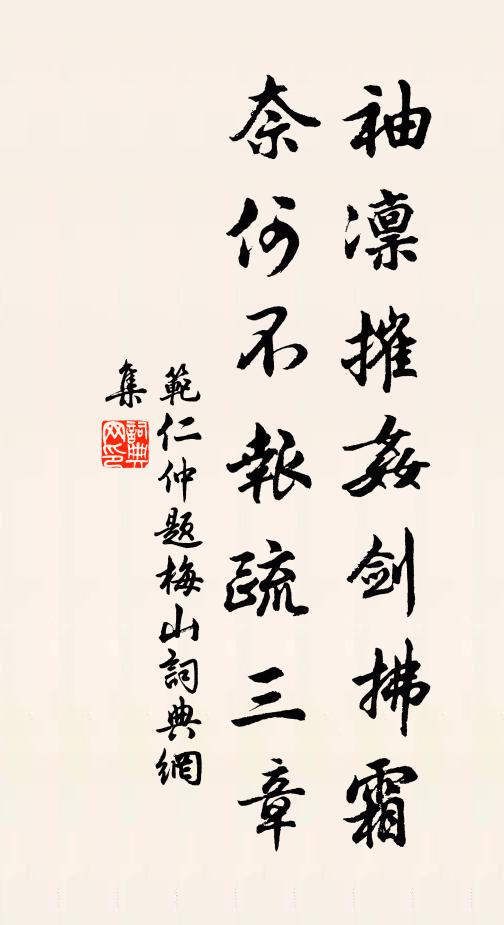 袖凜摧姦剑拂霜
奈何不報疏三章
範仁仲题梅山詞典網
集
詞典网印